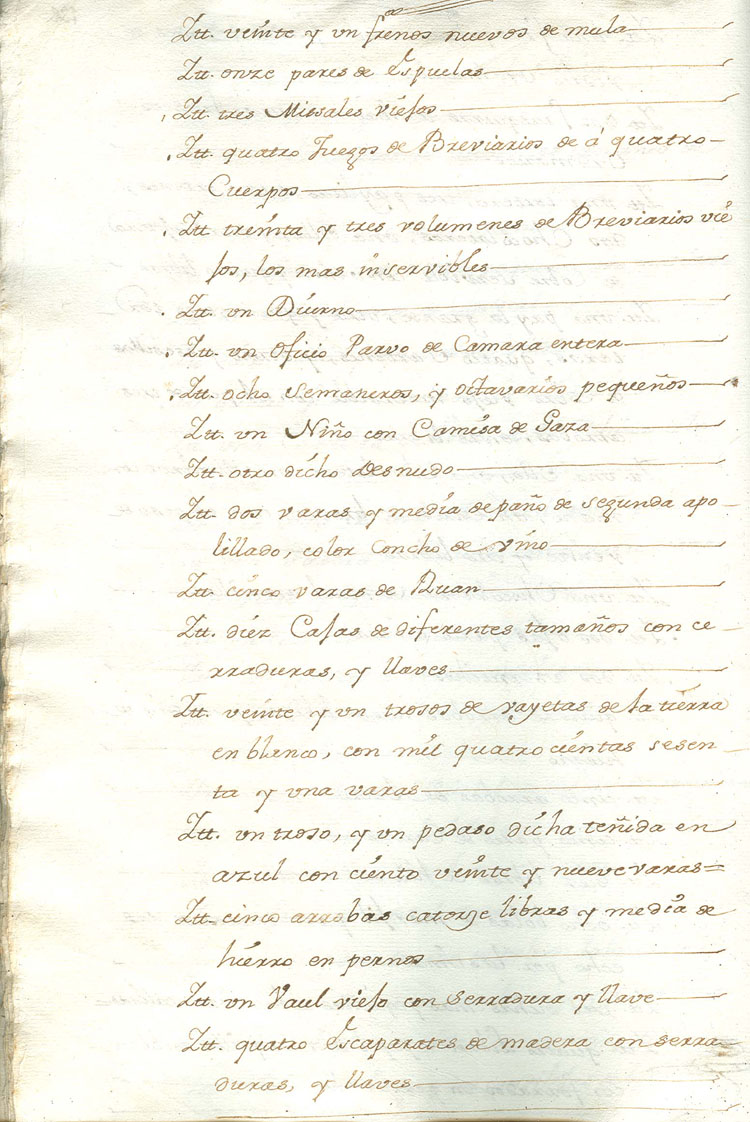 Itt. veinte y un frenos nuevos de mula
Itt. onze pares de Espuelas
Itt. tres Missales viejos
Itt. quatro Juegos de Breviarios de á quatro
Cuerpos
Itt treinta y tres volumenes de Breviarios vie
jos, los mas inservibles
Itt. un Diurno
Itt. un Oficio Parvo de Camara entera
Itt. ocho semaneros, y octavarios pequeños
Itt. un Niño con Camisa de Gaza
Itt. otro dicho desnudo
Itt. dos varas y media de paño de segunda apo
lillado, color Concho de vino
Itt. cinco varas de Ruan
Itt. diez Cajas de diferentes tamaños con ce
rraduras, y llaves
Itt. veinte y un trosos de vayetas de la tierra
en blanco, con mil quatrocientas sesen
ta y una varas
Itt. un troso, y un pedaso dicha teñida en
azul con ciento veinte y nueve varas=
Itt. cinco arrobas catorze libras y media de
hierro en pernos
Itt. un Vaul viejo con serradura y llave
Itt. quatro Escaparates de madera con serra
duras, y llaves